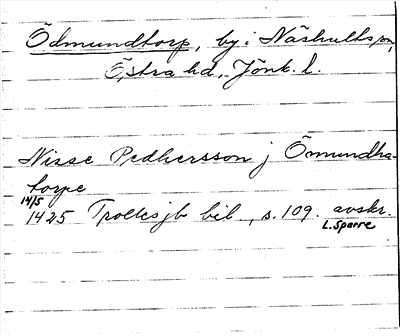 Ödmundtorp, by i Näshults sn,
Östra hd., Jönk. l.
Nisse Pedhersson j Ömundha-
torpe
14/5
1425 Trolles jb bil., s. 109. avskr.
L. Sparre